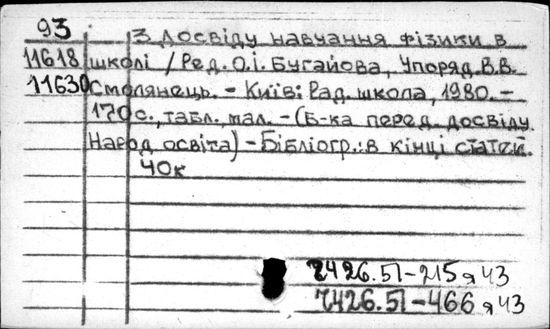 93 З досвіду навчання фізики в
11618 школі / Ред. О.і. Бугайова, Упоряд. В.В.
11630 Смолянець. - Київ: Рад. школа, 1980. -
170 с., табл., мал. - (Б-ка перед. досвіду.
Народ. освіта) - Бібліогр.: в кінці статей.
40к
7426.51-215 я 43
7426.51-466 я 43